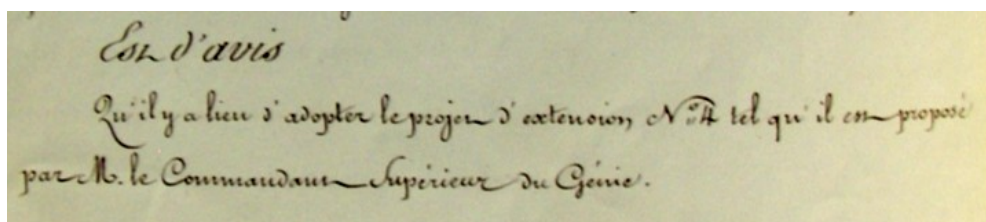 Est d'avis
Qu'il y a lieu d'adopter le projet d'extension N° 4 tel qu'il est proposé
par M. le Commandant Supérieur du Génie.